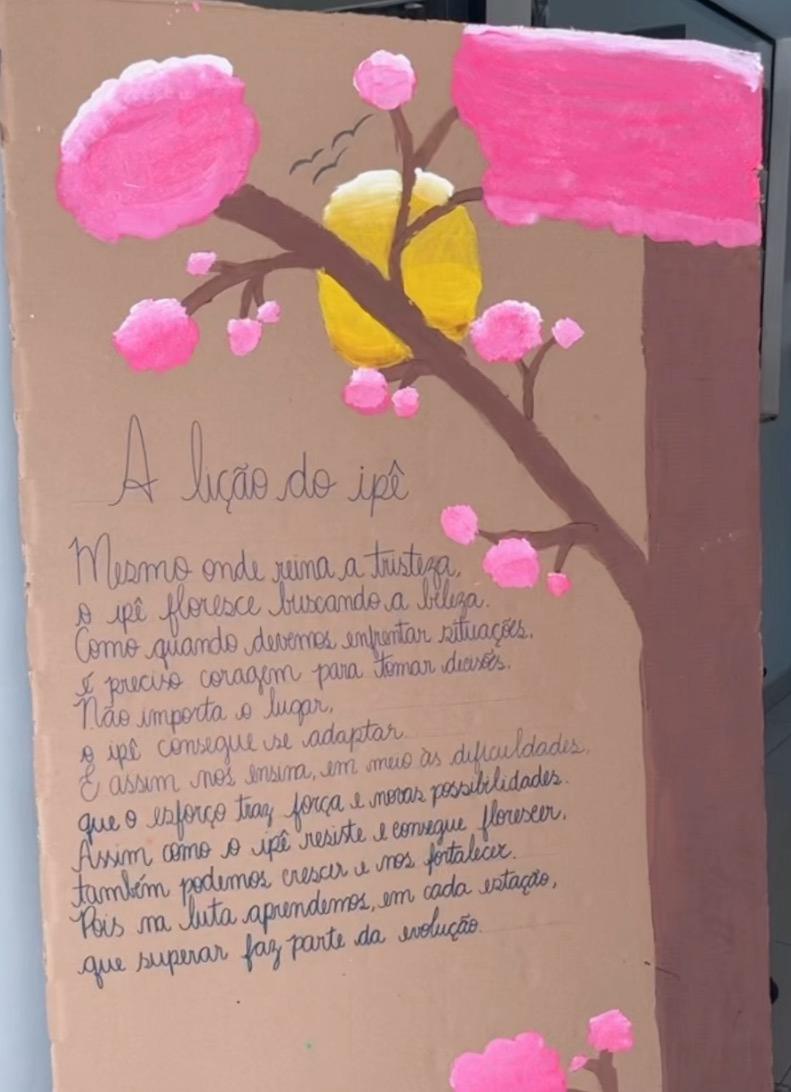 A lição do ipê
Mesmo onde reina a tristeza,
o ipê floresce buscando a beleza.
Como quando devemos enfrentar situações,
é preciso coragem para tomar decisões.
Não importa o lugar,
o ipê consegue se adaptar.
E assim nos ensina, em meio às dificuldades,
que o esforço traz força e novas possibilidades.
Assim como o ipê resiste e consegue florescer,
também podemos crescer e nos fortalecer.
Pois na luta aprendemos, em cada estação,
que superar faz parte da evolução.